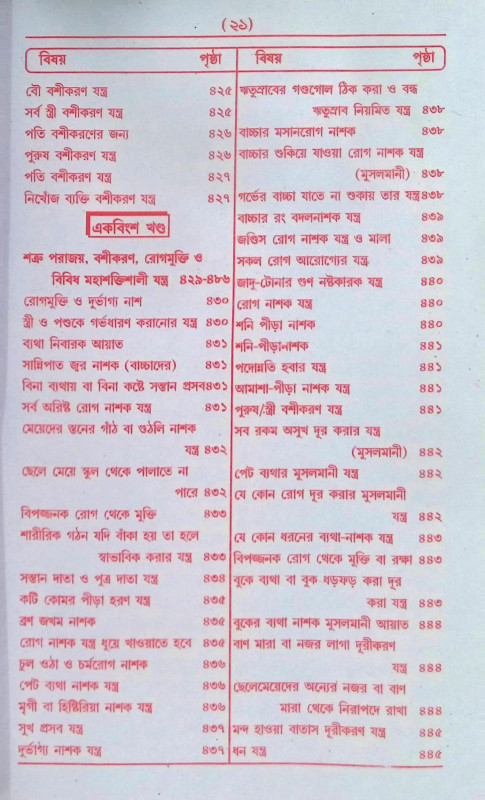 (২১)
বিষয় পৃষ্ঠা
বৌ বশীকরণ যন্ত্র ৪২৫
সর্ব স্ত্রী বশীকরণ যন্ত্র ৪২৫
পতি বশীকরণের জন্য ৪২৬
পুরুষ বশীকরণ যন্ত্র ৪২৬
পতি বশীকরণ যন্ত্র ৪২৭
নিখোঁজ ব্যক্তি বশীকরণ যন্ত্র ৪২৭
একবিংশ খণ্ড
শত্রু পরাজয়, বশীকরণ, রোগমুক্তি ও
বিবিধ মহাশক্তিশালী যন্ত্র ৪২৯-৪৮৬
রোগমুক্তি ও দুর্ভাগ্য নাশ ৪৩০
স্ত্রী ও পশুকে গর্ভধারণ করানোর যন্ত্র ৪৩০
ব্যথা নিবারক আয়াত ৪৩১
সান্নিপাত জ্বর নাশক (বাচ্চাদের) ৪৩১
বিনা ব্যথায় বা বিনা কষ্টে সন্তান প্রসব ৪৩১
সর্ব অরিষ্ট রোগ নাশক যন্ত্র ৪৩১
মেয়েদের স্তনের গাঁঠ বা গুঠলি নাশক
যন্ত্র ৪৩২
ছেলে মেয়ে স্কুল থেকে পালাতে না
পারে ৪৩২
বিপজ্জনক রোগ থেকে মুক্তি ৪৩৩
শারীরিক গঠন যদি বাঁকা হয় তা হলে
স্বাভাবিক করার যন্ত্র ৪৩৩
সন্তান দাতা ও পুত্র দাতা যন্ত্র ৪৩৪
কটি কোমর পীড়া হরণ যন্ত্র ৪৩৫
ব্রণ জখম নাশক ৪৩৫
রোগ নাশক যন্ত্র ধুয়ে খাওয়াতে হবে ৪৩৫
চুল ওঠা ও চর্মরোগ নাশক ৪৩৬
পেট ব্যথা নাশক যন্ত্র ৪৩৬
মৃগী বা হিষ্টিরিয়া নাশক যন্ত্র ৪৩৬
সুখ প্রসব যন্ত্র ৪৩৭
দুর্ভাগ্য নাশক যন্ত্র ৪৩৭
বিষয় পৃষ্ঠা
ঋতুস্রাবের গণ্ডগোল ঠিক করা ও বন্ধ
ঋতুস্রাব নিয়মিত যন্ত্র ৪৩৮
বাচ্চার মসানরোগ নাশক ৪৩৮
বাচ্চার শুকিয়ে যাওয়া রোগ নাশক যন্ত্র
(মুসলমানী) ৪৩৮
গর্ভের বাচ্চা যাতে না শুকায় তার যন্ত্র ৪৩৮
বাচ্চার রং বদলনাশক যন্ত্র ৪৩৯
জণ্ডিস রোগ নাশক যন্ত্র ও মালা ৪৩৯
সকল রোগ আরোগ্যের যন্ত্র ৪৩৯
জাদু-টোনার গুণ নষ্টকারক যন্ত্র ৪৪০
রোগ নাশক যন্ত্র ৪৪০
শনি পীড়া নাশক ৪৪০
শনি-পীড়ানাশক ৪৪১
পদোন্নতি হবার যন্ত্র ৪৪১
আমাশা-পীড়া নাশক যন্ত্র ৪৪১
পুরুষ/স্ত্রী বশীকরণ যন্ত্র ৪৪১
সব রকম অসুখ দূর করার যন্ত্র
(মুসলমানী) ৪৪২
পেট ব্যথার মুসলমানী যন্ত্র ৪৪২
যে কোন রোগ দূর করার মুসলমানী
যন্ত্র ৪৪২
যে কোন ধরনের ব্যথা-নাশক যন্ত্র ৪৪৩
বিপজ্জনক রোগ থেকে মুক্তি বা রক্ষা ৪৪৩
বুকে ব্যথা বা বুক ধড়ফড় করা দূর
করা যন্ত্র ৪৪৩
বুকের ব্যথা নাশক মুসলমানী আয়াত ৪৪৪
বাণ মারা বা নজর লাগা দূরীকরণ
যন্ত্র ৪৪৪
ছেলেমেয়েদের অন্যের নজর বা বাণ
মারা থেকে নিরাপদে রাখা ৪৪৪
মন্দ হাওয়া বাতাস দূরীকরণ যন্ত্র ৪৪৫
ধন যন্ত্র ৪৪৫